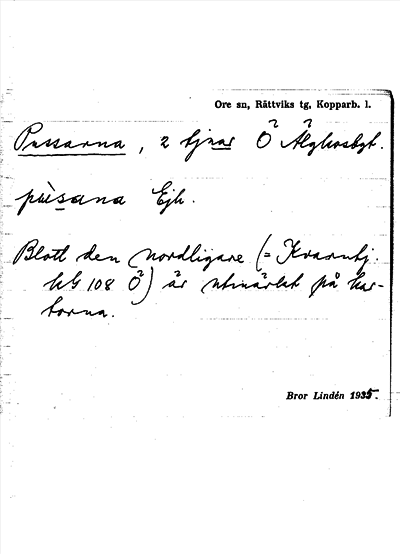 Ore sn, Rättviks tg, Kopparb. l.
Pussarna, 2 tjnar Ö Älghosbgt.
pùsana Ejh.
Blott den nordligare (= Kvarntj.
kG 108 Ö) är utmärkt på kar-
torna.
Bror Lindén 1935.